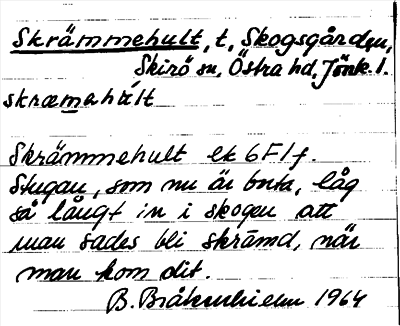 Skrämmehult, t, Skogsgården,
Skirö sn, Östra hd, Jönk. l.
skræmahúlt
Skrämmehult ek 6F1f.
Stugan, som nu är borta, låg
så långt in i skogen att
man sades bli skrämd, när
man kom dit.
B. Bråkenhielm 1964